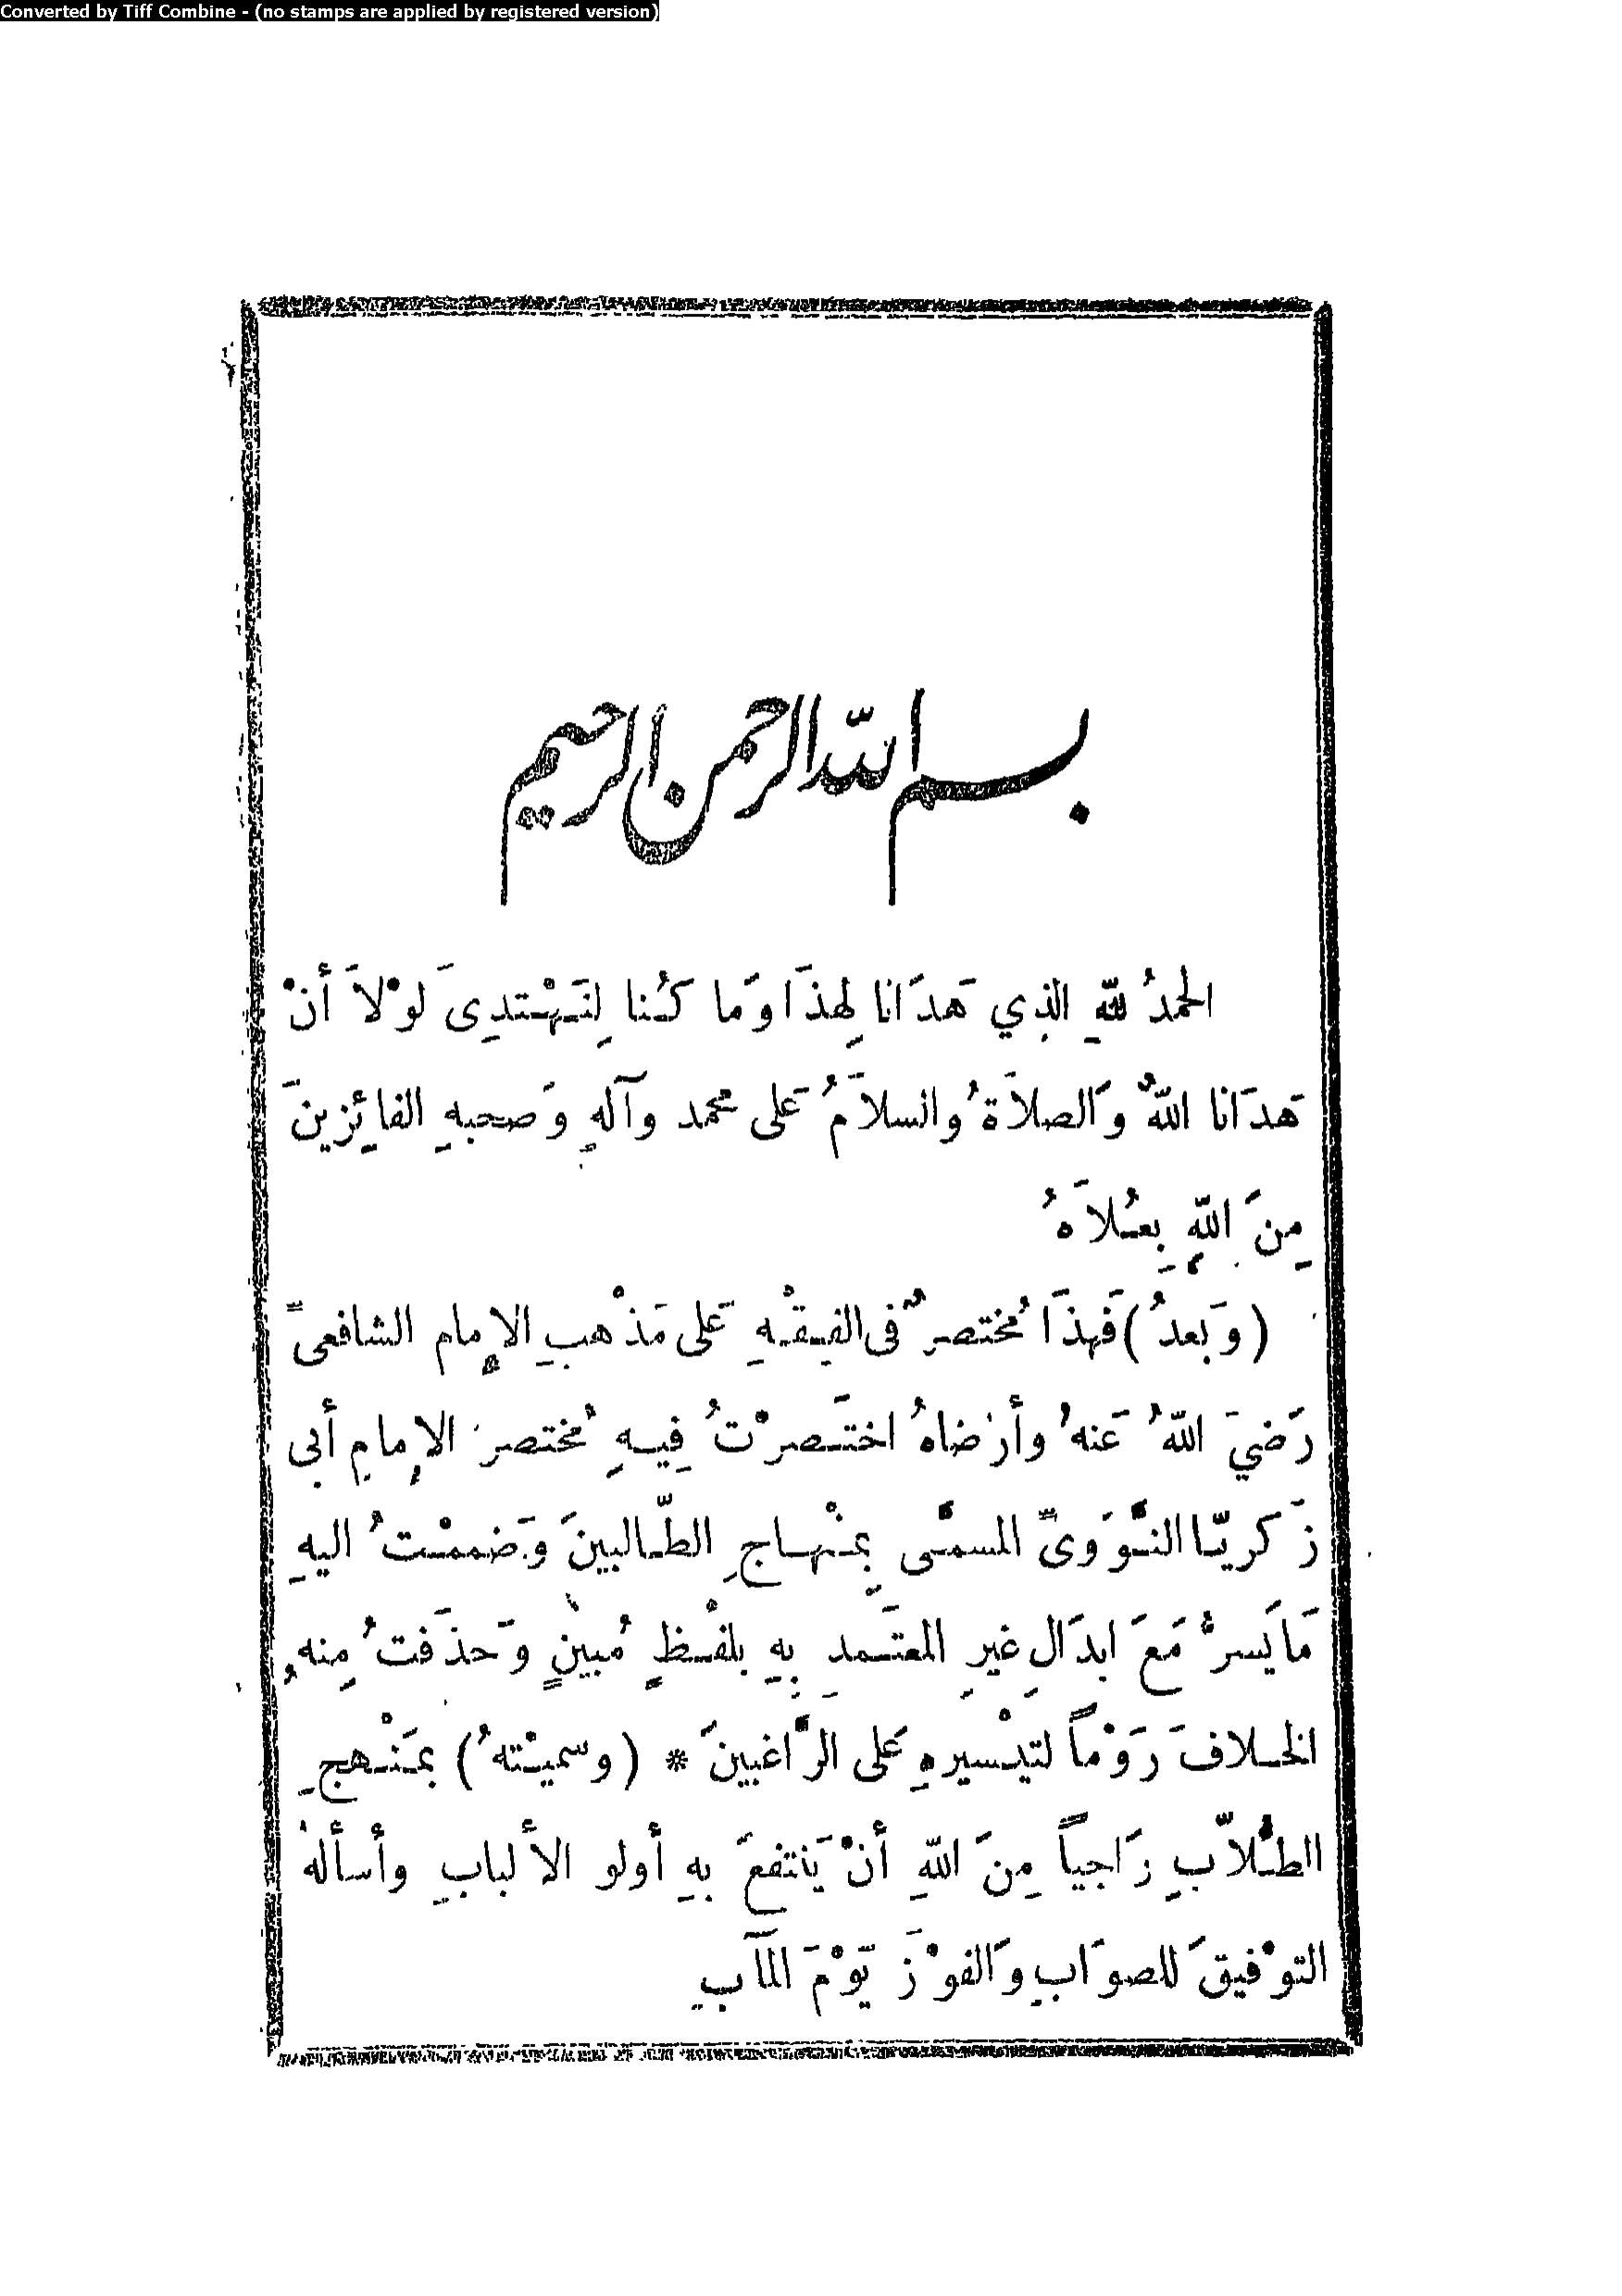 Converted by Tiff Combine - (no stamps are applied by registered version)
بسم الله الرحمن الرحيم
الحمدُ للهِ الذِي هَدَانا لِهذَا وَمَا كُنا لِنَهْتدِىَ لَوْلاَ أنْ
هَدَانا اللهُ وَالصلاَةُ والسلاَمُ عَلى محمد وآلهِ وَصحبهِ الفائِزينَ
مِنَ اللهِ بِعُلاَهُ
(وَبَعدُ) فَهذَا مُختصرٌ فى الفِقْهِ عَلى مَذْهبِ الإمام الشافعىِّ
رَضيَ اللهُ عَنهُ وأرْضاهُ اختَصرْتُ فِيهِ مُختصرَ الإمامِ أبى
زَكريّا النَّوَوىِّ المسمَّى بِمنْهاجِ الطّالبينَ وَضممْتُ اليهِ
مَا يَسرَّ مَعَ ابدَالِ غيرِ المعتَمدِ بِهِ بلفْظٍ مُبينٍ وَحذَفتُ مِنهُ
الخلافَ رَوْماً لتيْسيرهِ عَلى الرَّاغبينَ * (وسميْتهُ) بمَنْهجِ
الطُّلاّبِ رَاجياً مِنَ اللهِ أنْ يَنتفعَ بهِ أولو الألبابِ وأسألهُ
التوْفيقَ للصوَابِ وَالفوْزَ يَوْمَ المآبِ